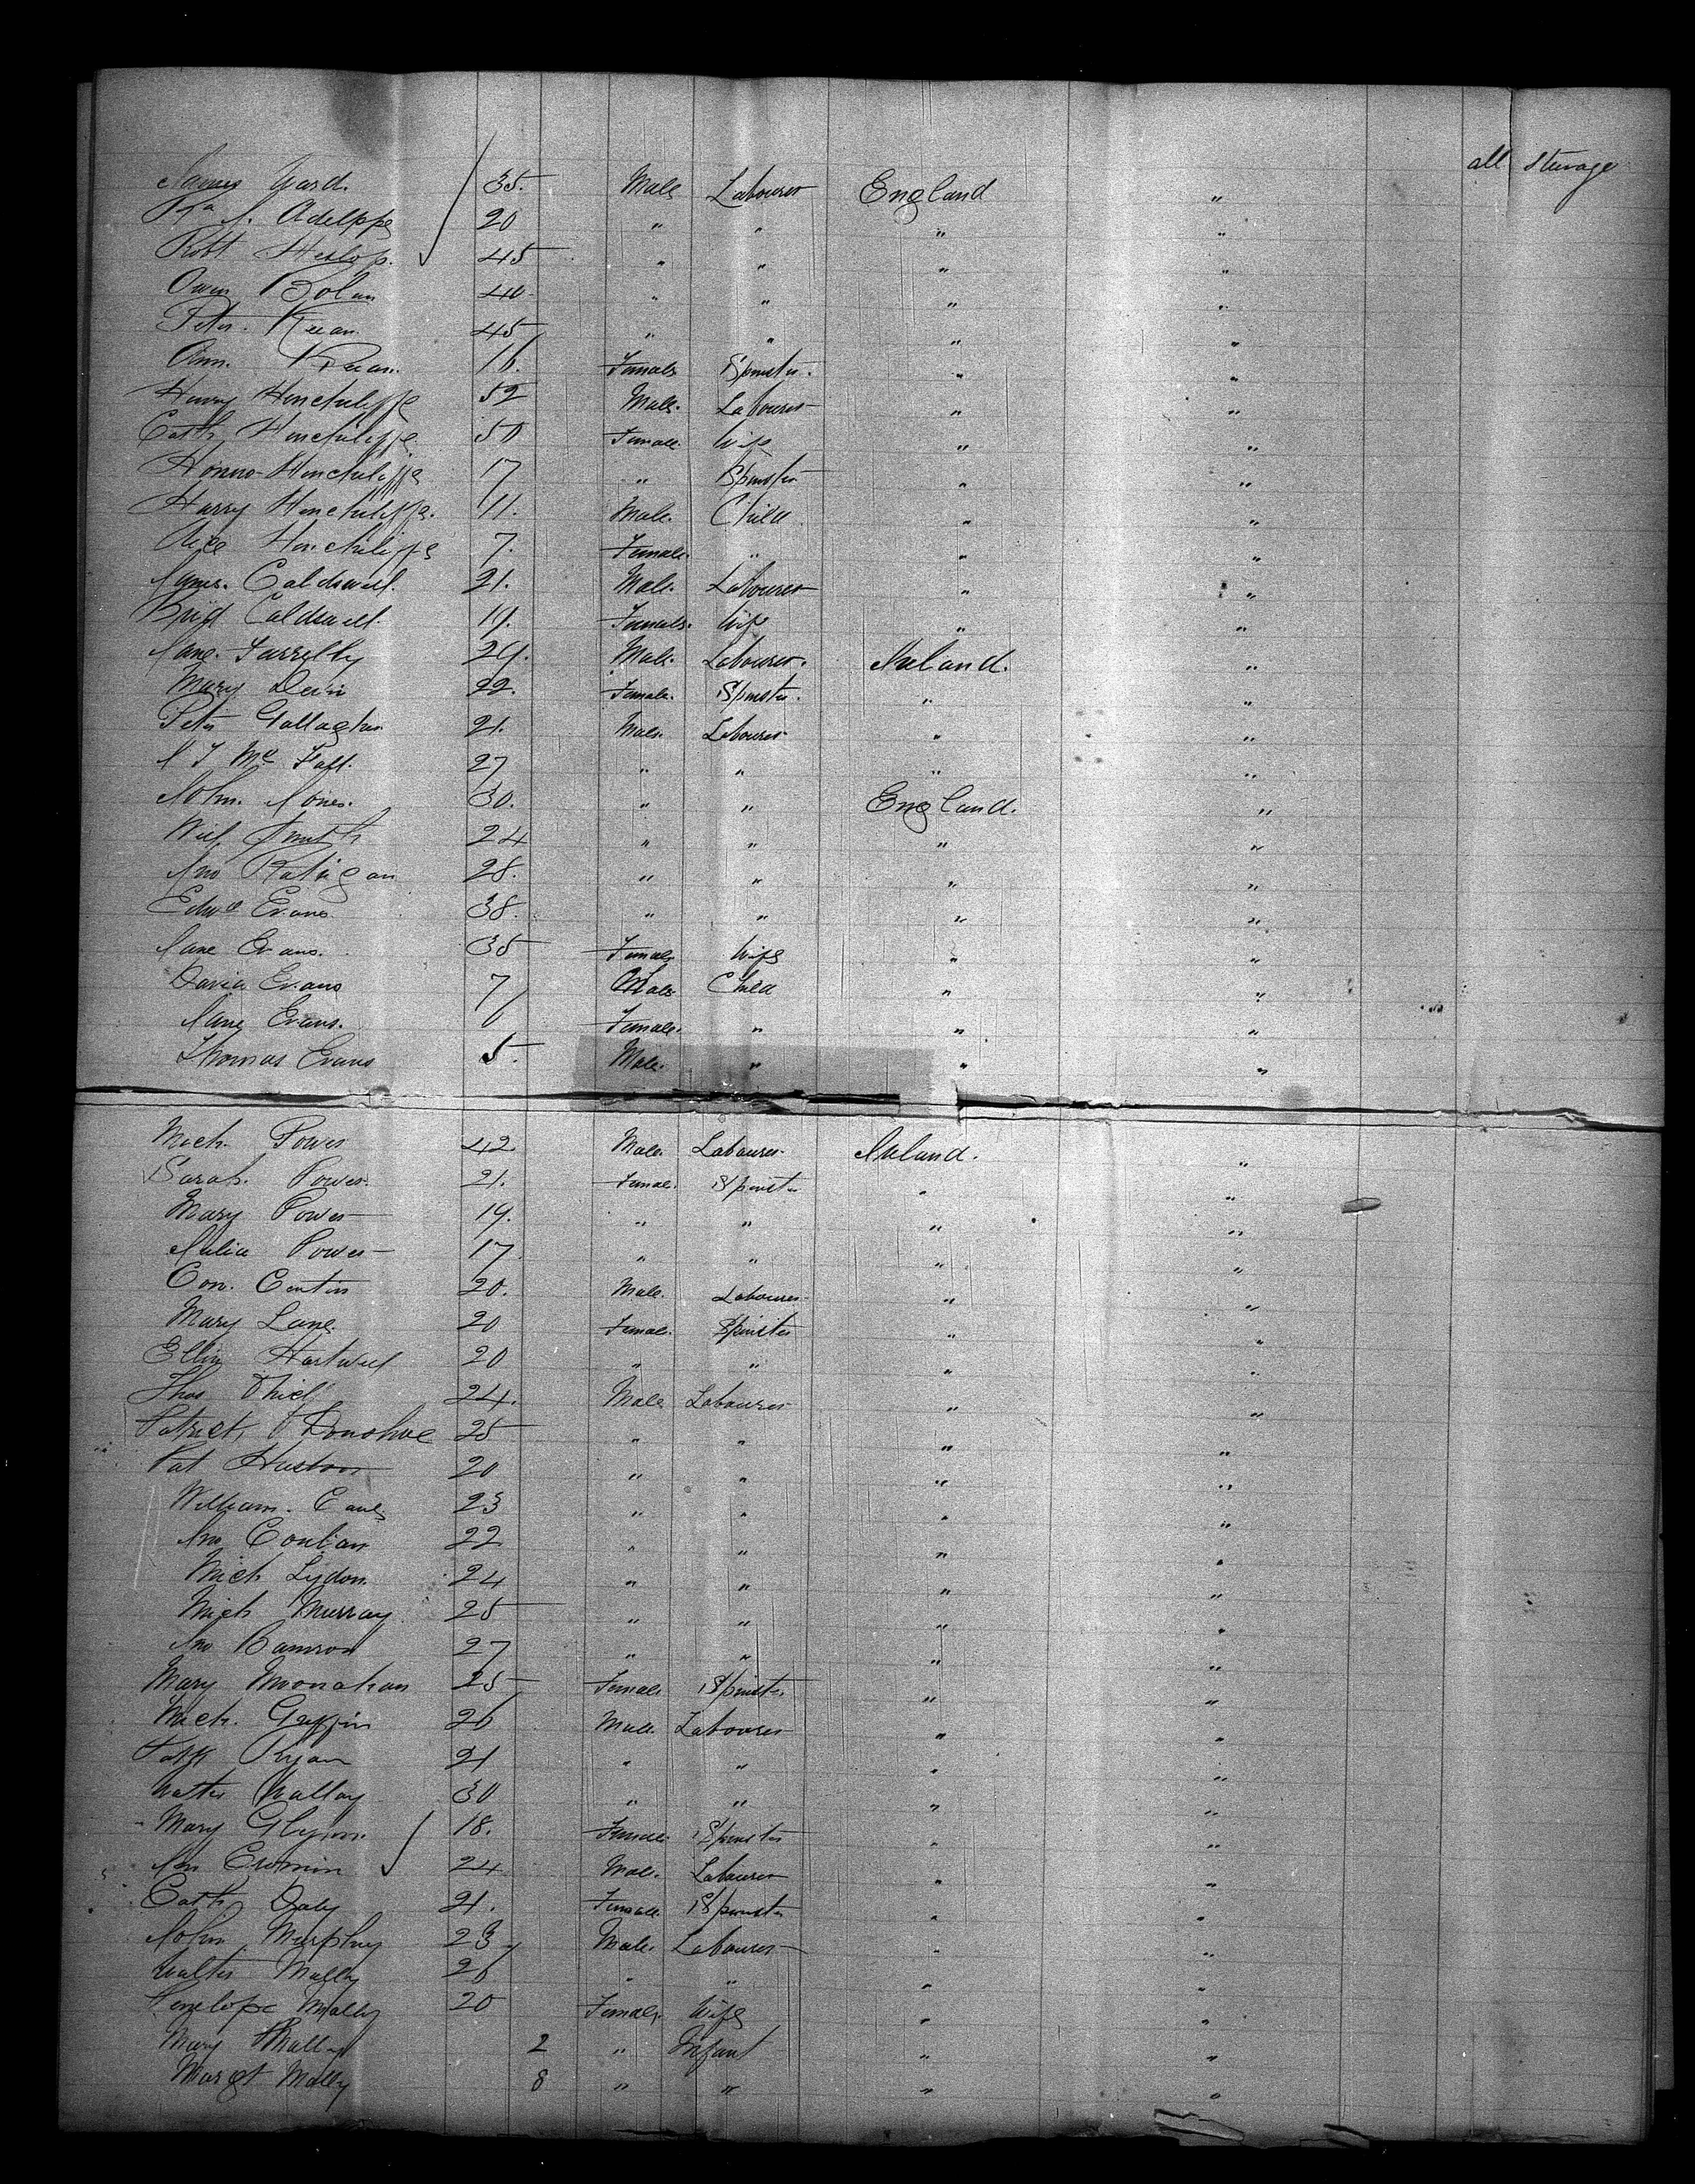 all Steerage
James Yard. 35. Male Labourer England "
Adelppe 20 " " " "
Robt Heslop. 45 " " " "
Owen Bolan 40 " " " "
Peter. Keean. 45 " " " "
Ann. Keean. 16. Female Spinster. " "
Henry Hinchcliffe 52 Male. Labourer " "
Cath Hinchcliffe 50 Female. Wife " "
Honno Hinchcliffe 17 " Spinster " "
Harry Hinchcliffe. 11. Male. Child " "
Alice Hinchcliffe 7. Female. " " "
James. Caldwell. 21. Male. Labourer " "
Brigd Caldwell. 19. Female. Wife " "
Jane. Farrelly 29. Male. Labourer. Ireland. "
Mary Devin 22. Female. Spinster. " "
Peter Gallagher 21. Male. Labourer " "
J J Mc Fall. 27 " " " "
John. Jones. 30. " " England. "
Will Smith 24 " " " "
Jno Ratigan 28. " " " "
Edwd Evans 38. " " " "
Jane Evans. 35 Female Wife " "
David Evans 7 Male Child " "
Jane Evans. 6 Female. " " "
Thomas Evans 5. Male. " " "
Mich. Power 42. Male Labourer Ireland. "
Sarah. Power. 21. Female. Spinster " "
Mary Power 19. " " " "
Julia Power 17 " " " "
Con. Curtin 20. Male. Labourer " "
Mary Lane. 20 Female. Spinster " "
Ellin Hartwell 20 " " " "
Thos 24. Male Labourer " "
Patrick O'Donohue 25 " " " "
Pat Huston 20 " " " "
William. Cane 23 " " " "
Jno Conlan 22 " " " "
Mich Lydon. 24 " " " "
Mich Murray. 25 " " " "
Jno 27 " " " "
Mary Moonahan 25 Female Spinster " "
Mich. Griffin 26 Male. Labourer " "
Patk Ryan 21 " " " "
Walter Mallay 30 " " " "
Mary Glynn. 18. Female. Spinster " "
Jno Cronin 24 Male. Labourer " "
Cath Daly 21. Female Spinster " "
John Murphy 23 Male. Labourer " "
Walter Mally 26 " " " "
Penelope Mally 20 Female. Wife " "
Mary Mally 2 " Infant " "
Margt Mally 8 " " " "